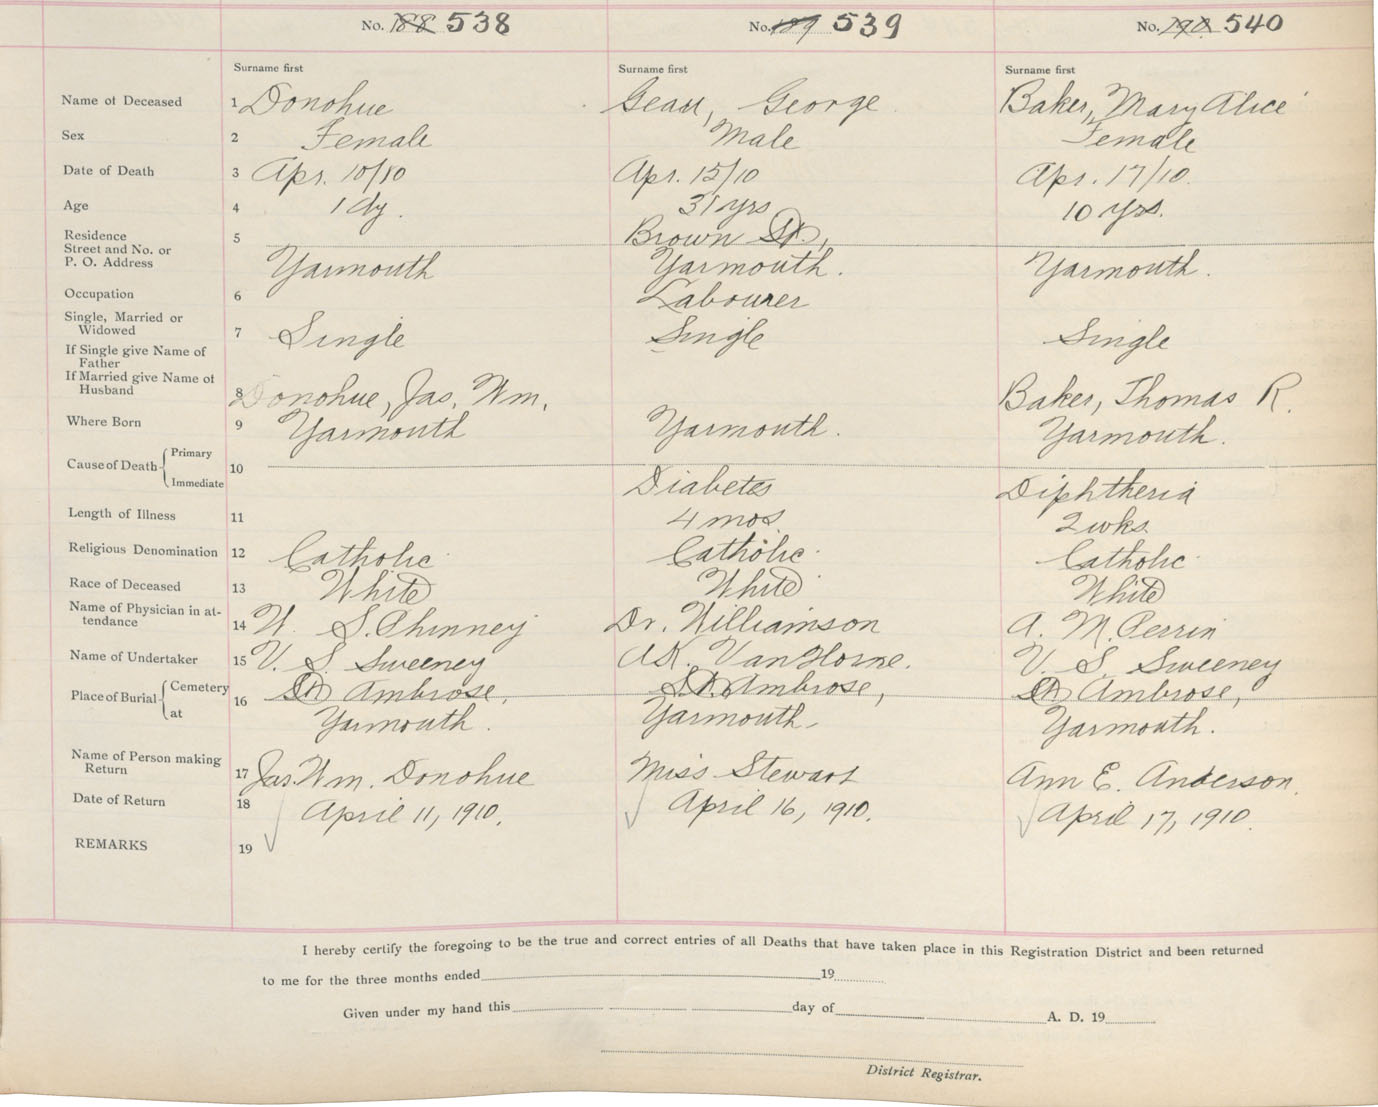 No. 188 538 No. 189 539 No. 190 540
Surname first Surname first Surname first
Name of Deceased 1 Donohue Geau, George Baker, Mary Alice
Sex 2 Female Male Female
Date of Death 3 Apr. 10/10 Apr. 15/10 Apr. 17/10.
Age 4 1 dy. 31 yrs 10 yrs.
Residence
Street and No. or 5 Brown St,
P. O. Address Yarmouth Yarmouth. Yarmouth.
Occupation 6 Labourer
Single, Married or
Widowed 7 Single Single Single
If Single give Name of
Father
If Married give Name of
Husband 8 Donohue, Jas. Wm. Baker, Thomas R.
Where Born 9 Yarmouth Yarmouth. Yarmouth.
Primary
Cause of Death 10
Immediate Diabetes Diphtheria
Length of Illness 11 4 mos. 2 wks.
Religious Denomination 12 Catholic Catholic Catholic
Race of Deceased 13 White White White
Name of Physician in at-
tendance 14 S. Phinney Dr. Williamson A. M. Perrin
Name of Undertaker 15 V. S. Sweeney A.K. VanHorne. V. S. Sweeney
Place of Burial Cemetery 16 St Ambrose, St. Ambrose, St Ambrose,
at Yarmouth. Yarmouth. Yarmouth.
Name of Person making
Return 17 Jas. Wm. Donohue Miss Stewart Ann E. Anderson.
Date of Return 18 April 11, 1910. April 16, 1910. April 17, 1910.
REMARKS 19
I hereby certify the foregoing to be the true and correct entries of all Deaths that have taken place in this Registration District and been returned
to me for the three months ended 19
Given under my hand this day of A. D. 19
District Registrar.